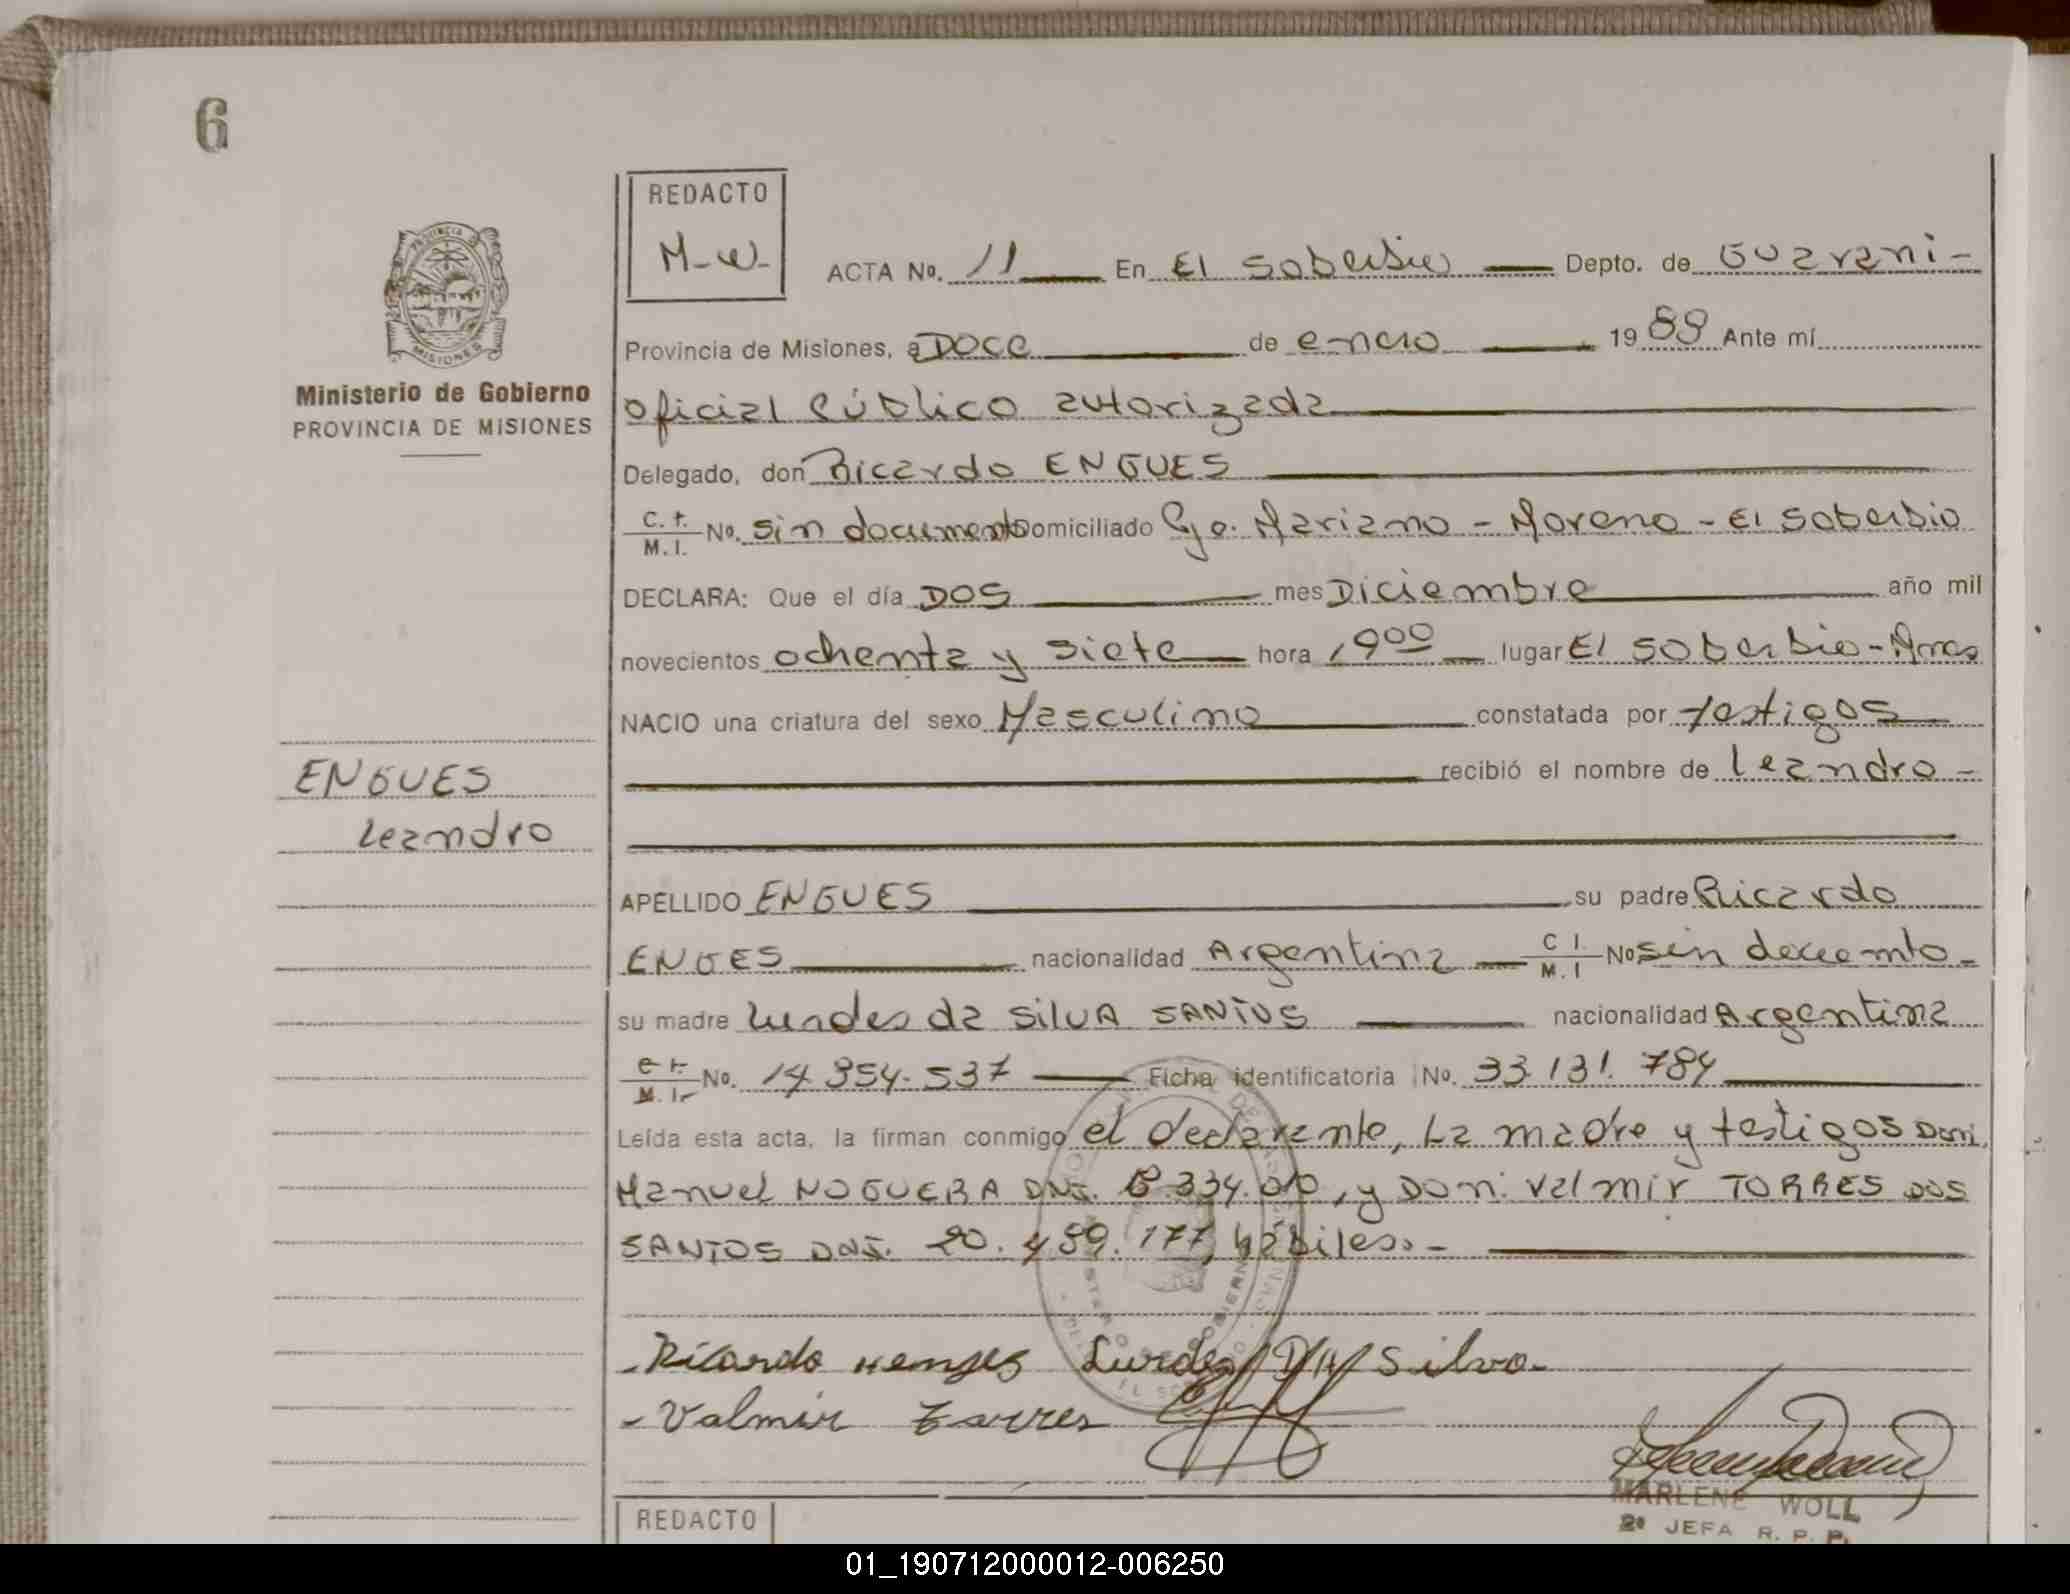 6
REDACTO
M-W-
ACTA No. 11 En El Soberbio Depto. de Guarani-
Provincia de Misiones, a DOCE de enero 1988 Ante mí
oficial Público autorizada
Ministerio de Gobierno
PROVINCIA DE MISIONES
Delegado, don Ricardo ENGUES
C.I. M.I. No. sin documento Domiciliado Pje. Mariano - Moreno - El Soberbio
DECLARA: Que el día DOS mes Diciembre año mil
novecientos ochenta y siete hora 19 00 lugar El Soberbio - Mnes
NACIO una criatura del sexo Masculino constatada por testigos
recibió el nombre de Leandro -
ENGUES
Leandro
APELLIDO ENGUES su padre Ricardo
ENGES nacionalidad Argentina C I. M. I No sin docuemto -
su madre Lurdes da SilVA SANTOS nacionalidad Argentina
C.I. M.I. No. 14.354.537 Ficha identificatoria No. 33.131.784
Leída esta acta, la firman conmigo el declarante, La madre y testigos Don
Manuel NOGUERA DNI. 334.010, y DON. Valmir TORRES DOS
SANTOS DNI. 20.489.177, hábiles.-
-Ricardo Henges Lurdes DA Silva-
-Valmir Torres
MARLENE WOLL
2ª JEFA R. P. P.
REDACTO
01_190712000012-006250